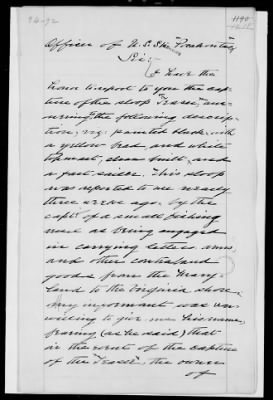 Officer of U.S. Str "Pocahontas"
Sir:
I have the
honor to report to you the cap-
ture of the sloop "Fraser", an-
swering the following descrip-
tion, viz: painted black, with
a yellow bead, and white
topmast, clean built, and
a fast sailer. This sloop
was reported to me nearly
three weeks ago, by the
capt. of a small fishing
smack as being engaged
in carrying letters, arms,
and other contraband
goods from the Mary-
land to the Virginia shore.
My informant was un-
willing to give me his name,
fearing (as he said) that
in the event of the capture
of the "Fraser", the owner
of